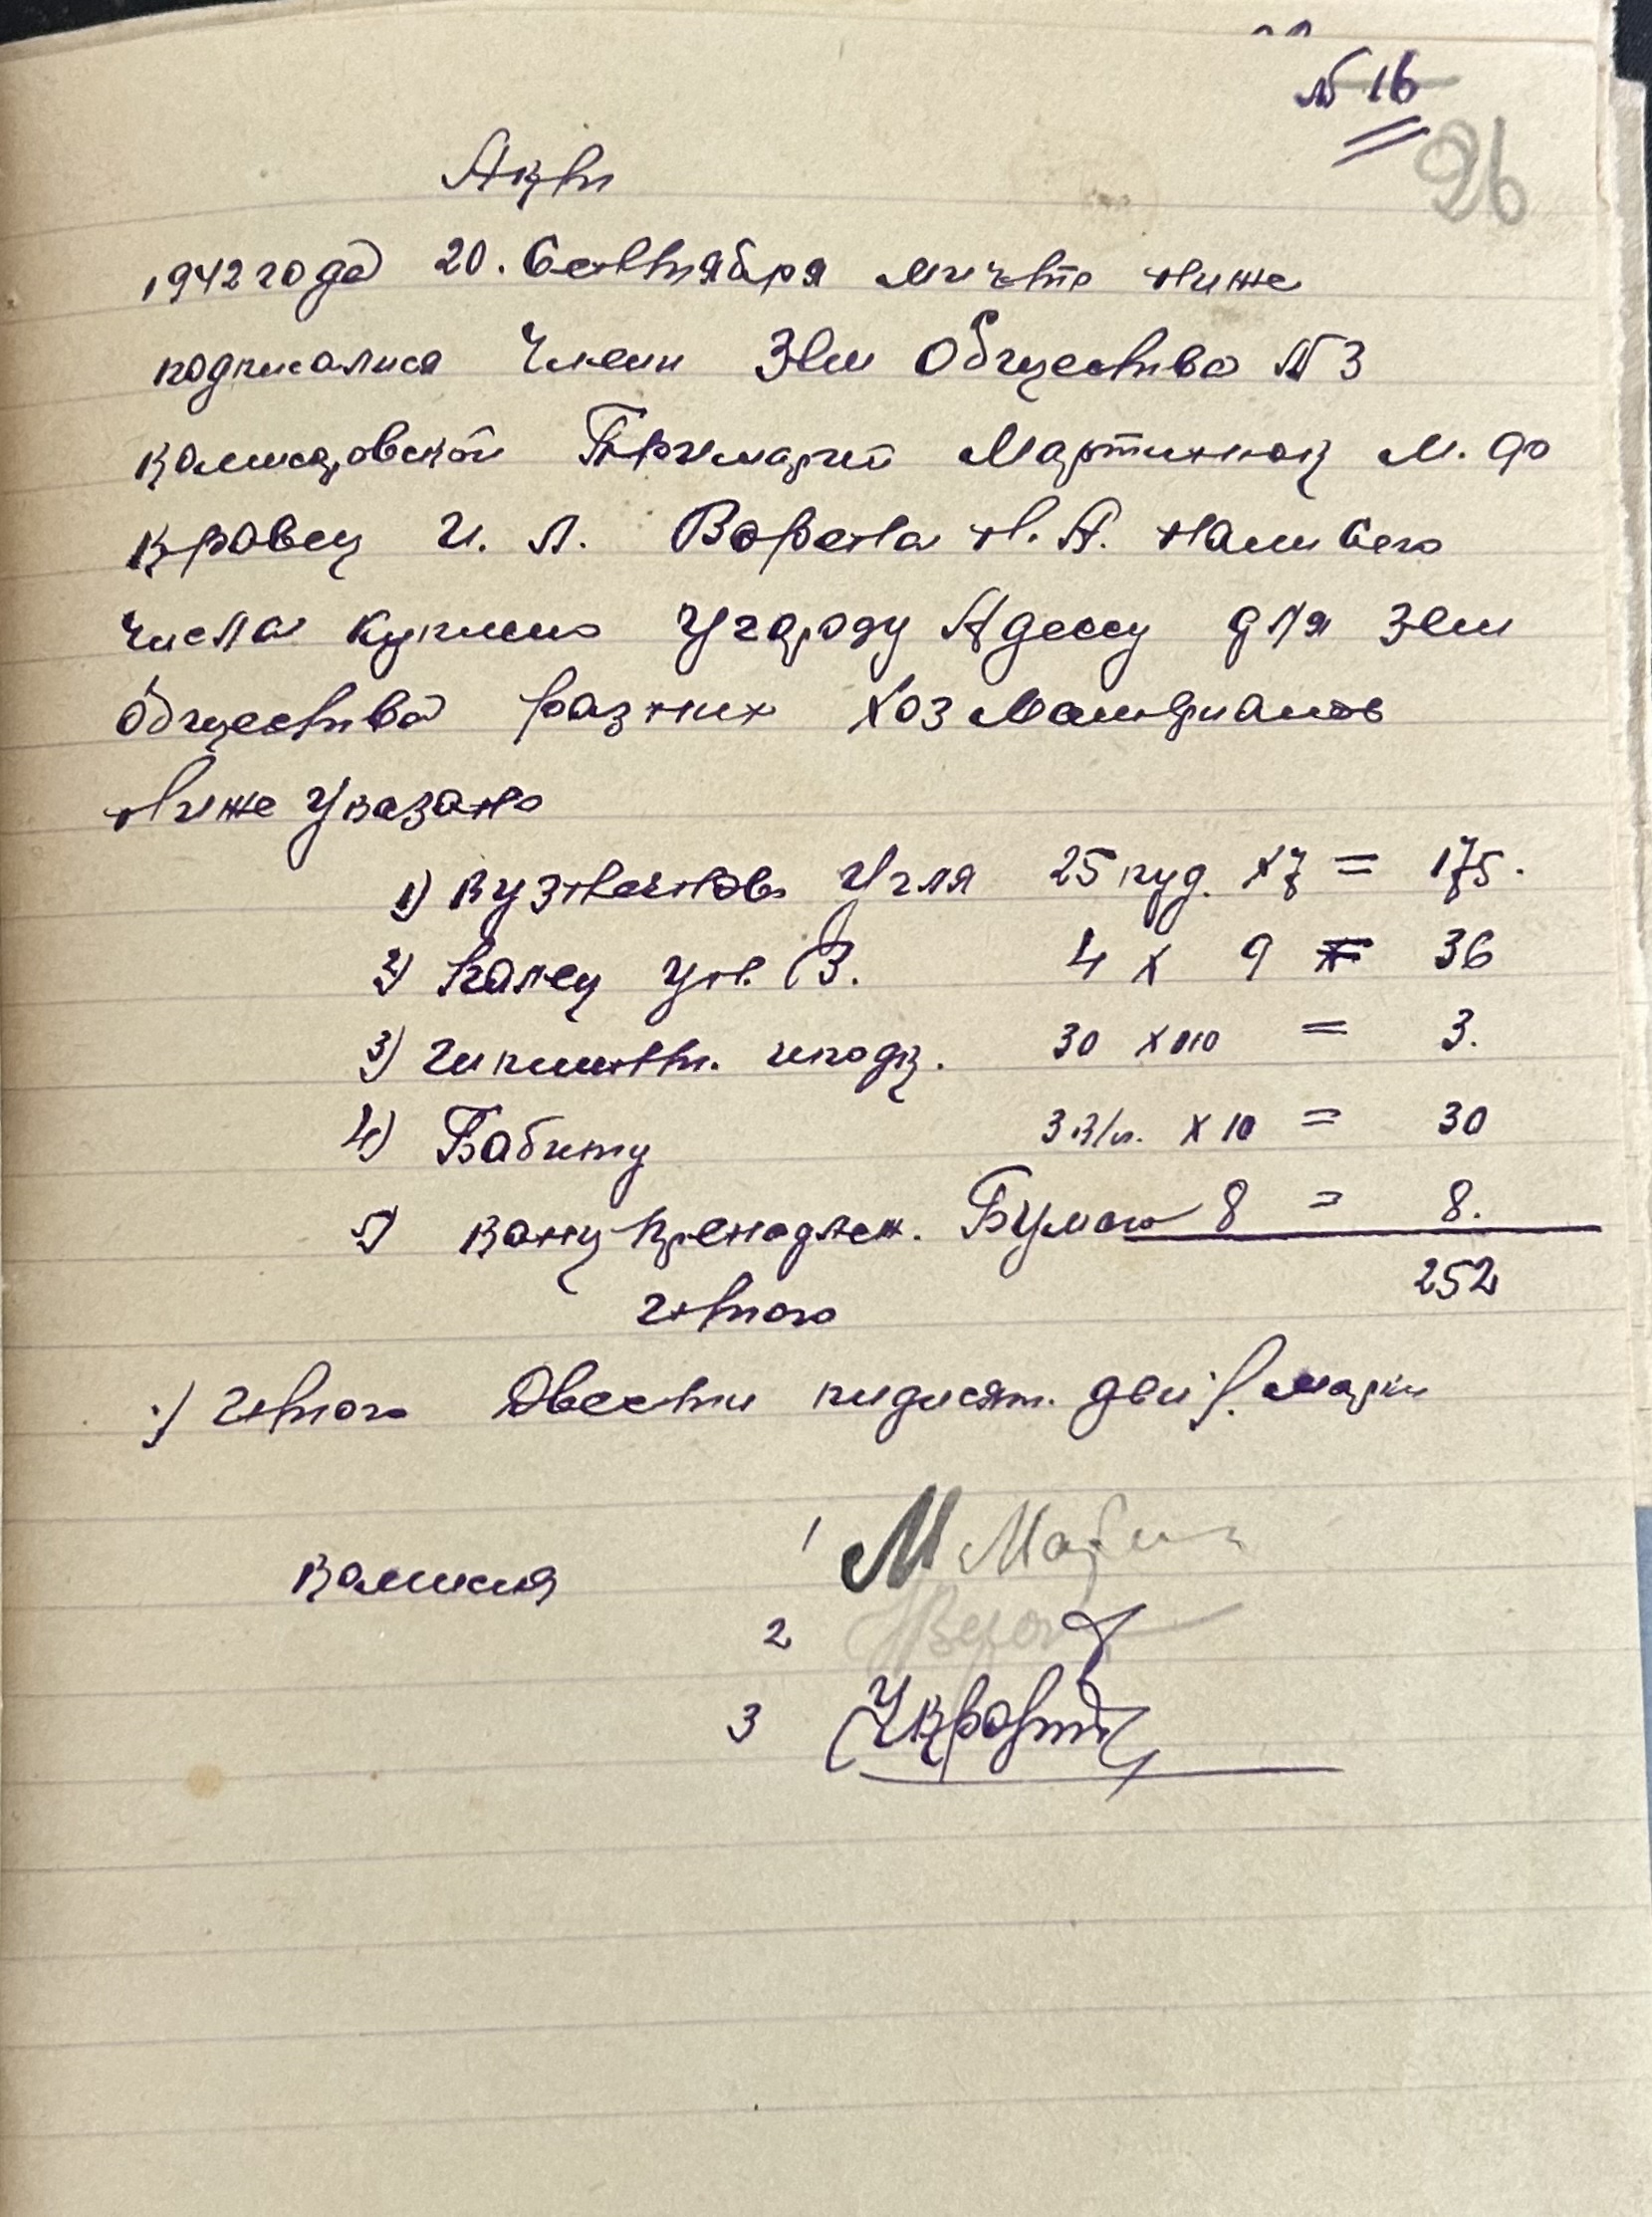 № 16
96
Акт
1942 года 20. Сентября мичто ниже
подписалися Члени Зем Общества № 3
комисаровской Примарии Мартинюк М. Ф
Кравец И. Л. Ворона Н. А. нами сего
числа куплено Угороду Адессу для зем
Общества разних хоз Матриалов
Ниже Указано
1) кузнечнов Угля 25 пуд. х 7 = 175.
2) Калец ун. В. 4 х 9 = 36
3) шпинт. 30 х 010 = 3.
4) Бабиту 3 к/г. х 10 = 30
5) Бумаги 8 = 8.
252
Итого
:/ Итого Двести пидисят. дви /: марки
Комисия
1
2
3